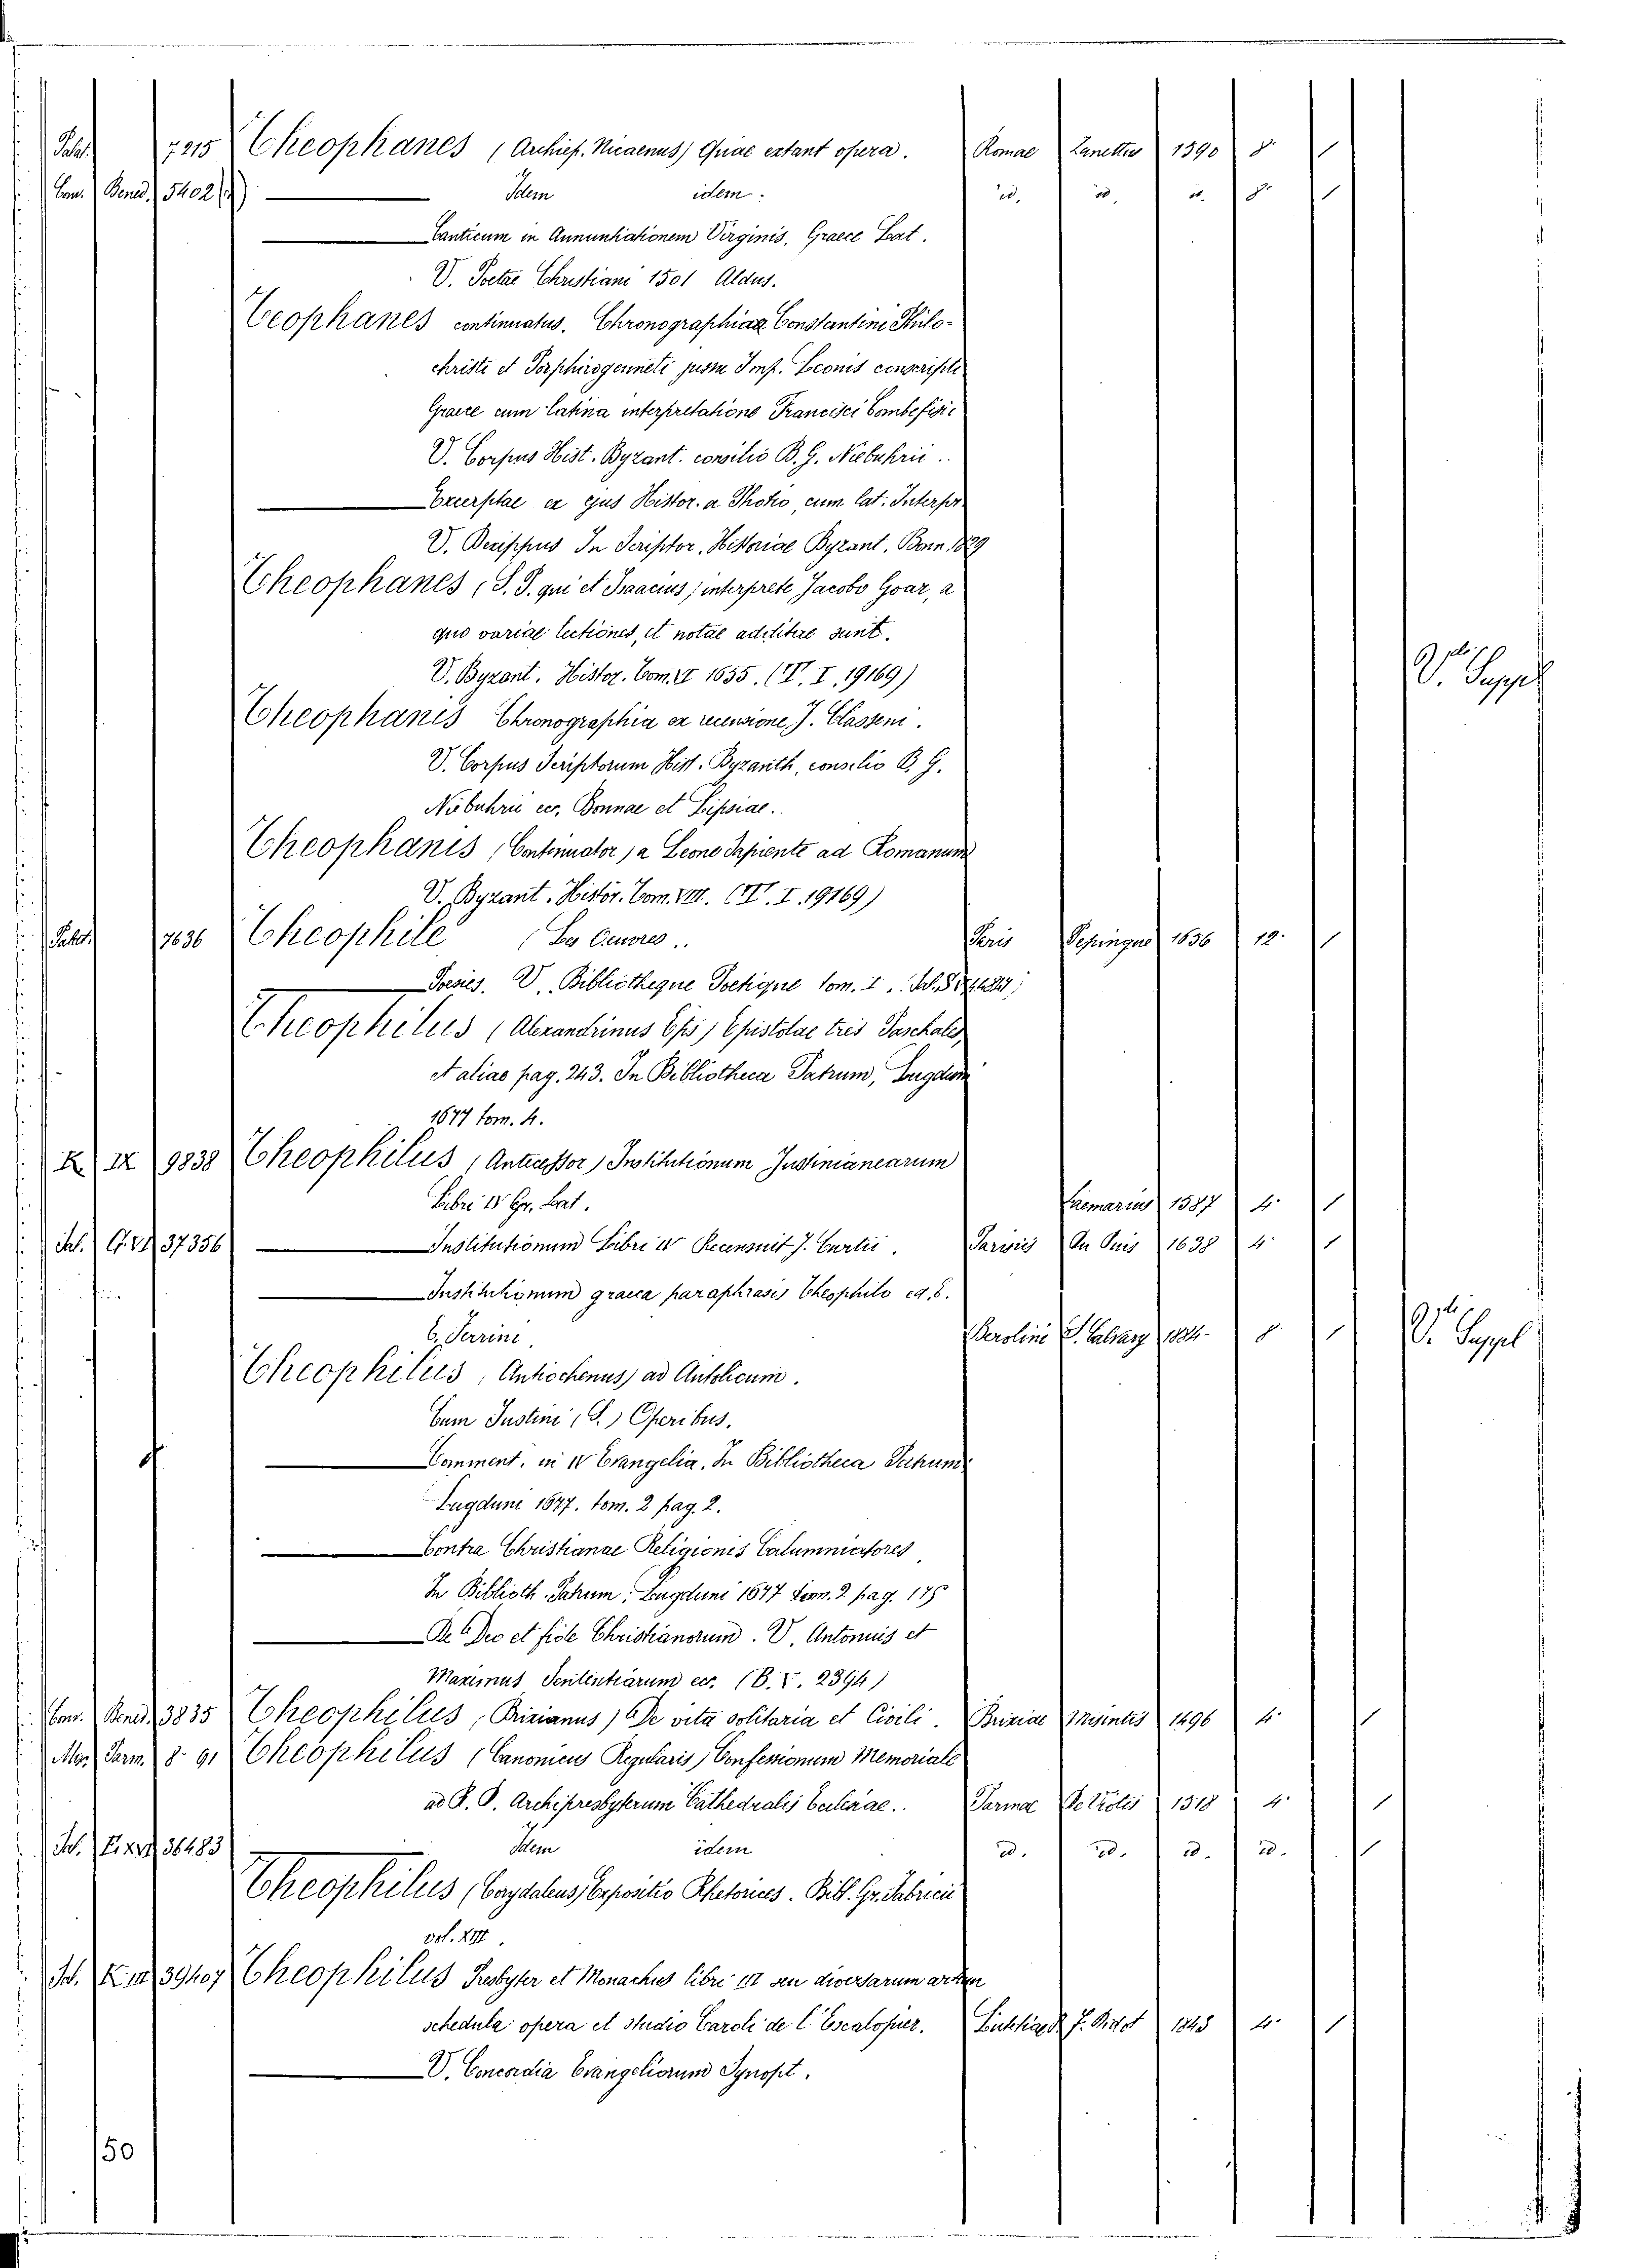 Palat. 7215 Theophanes (Archiep. Nicaenus) Quae extant opera. Romae Zanettus 1590 8° 1
Com. Bened. 5402 Idem idem. id. id. id. 8° 1
Canticum in Annuntiationem Virginis, Graece Lat.
V. Poetae Christiani 1501 Aldus.
Teophanes continuatus. Chronographiae Constantini Philo-
christi et Porphirogenneti jussu Imp. Leonis conscripti
Graece cum latina interpretatione Francisci Combefisii
V. Corpus Hist. Byzant. consilio B. G. Niebuhrii.
Excerptae ex ejus Histor. a Photio, cum lat. Interpr.
V. Dexippus In Scriptor. Historiae Byzant. Bonn 1829
Theophanes (S. P. qui et Isaacius) interprete Jacobo Goar, a
quo variae lectiones, et notae additae sunt. V. Suppl
V. Byzant. Histor. Tom. VI 1655. (I. 19169)
Theophanis Chronographia ex recensione J. Classeni.
V. Corpus Scriptorum Hist. Byzanth, consilio B. G.
Niebuhrii ecc, Bonnae et Lipsiae.
Theophanis (Continuator) a Leone Sapiente ad Romanum
V. Byzant. Histor. Tom. VIII. (I. 19169)
Palat. 7636 Théophile (Les Oeuvres.. Paris Pepingue 1656 12° 1
Poesies. V. Bibliotheque Poetique tom. I.
Theophilus (Alexandrinus Eps) Epistolae tres Paschales,
et alias pag. 243. In Bibliotheca Patrum, Lugduni
1677 tom. 4.
K IX 9838 Theophilus (Antecessor) Institutionum Justinianearum
Libri IV Gr. Lat. 1587 4° 1
37356 Institutionum Libri IV Recensuit J. Curtii. Parisiis Du Puis 1638 4° 1
Institutionum graeca paraphrasis Theophilo
C. Ferrini. Berolini S. Calvary 1884 8° 1 V. Suppl
Theophilus, Antiochenus) ad Autolicum.
Cum Justini (S.) Operibus.
Comment. in IV Evangelia. In Bibliotheca Patrum
Lugduni 1677. tom. 2 pag. 2.
Contra Christianae Religionis Calumniatores
In Biblioth. Patrum. Lugduni 1677 tom. 2 pag. 175
De Deo et fide Christianorum. V. Antonius et
Maximus Sententiarum ecc. (B. V. 2394)
Com. Bened. 3835 Theophilus, Brixianus) De vita solitaria et Civili. Brixiae Misintis 1496 4° 1
Mss. Parm. 8 91 Theophilus (Canonicus Regularis) Confessionum Memoriale
ad R. P. Archipresbyterum Cathedralis Ecclesiae.. Parmae 1518 4° 1
36483 Idem idem id. id. id. id. 1
Theophilus (Corydaleus) Expositio Rhetorices. Bibl. Gr. Fabricii
vol. XIII.
39407 Theophilus Presbyter et Monachus libri III seu diversarum artium
schedula opera et studio Caroli de l'Escalopier. F. Didot 1843 4° 1
V. Concordia Evangeliorum Synopt.
150